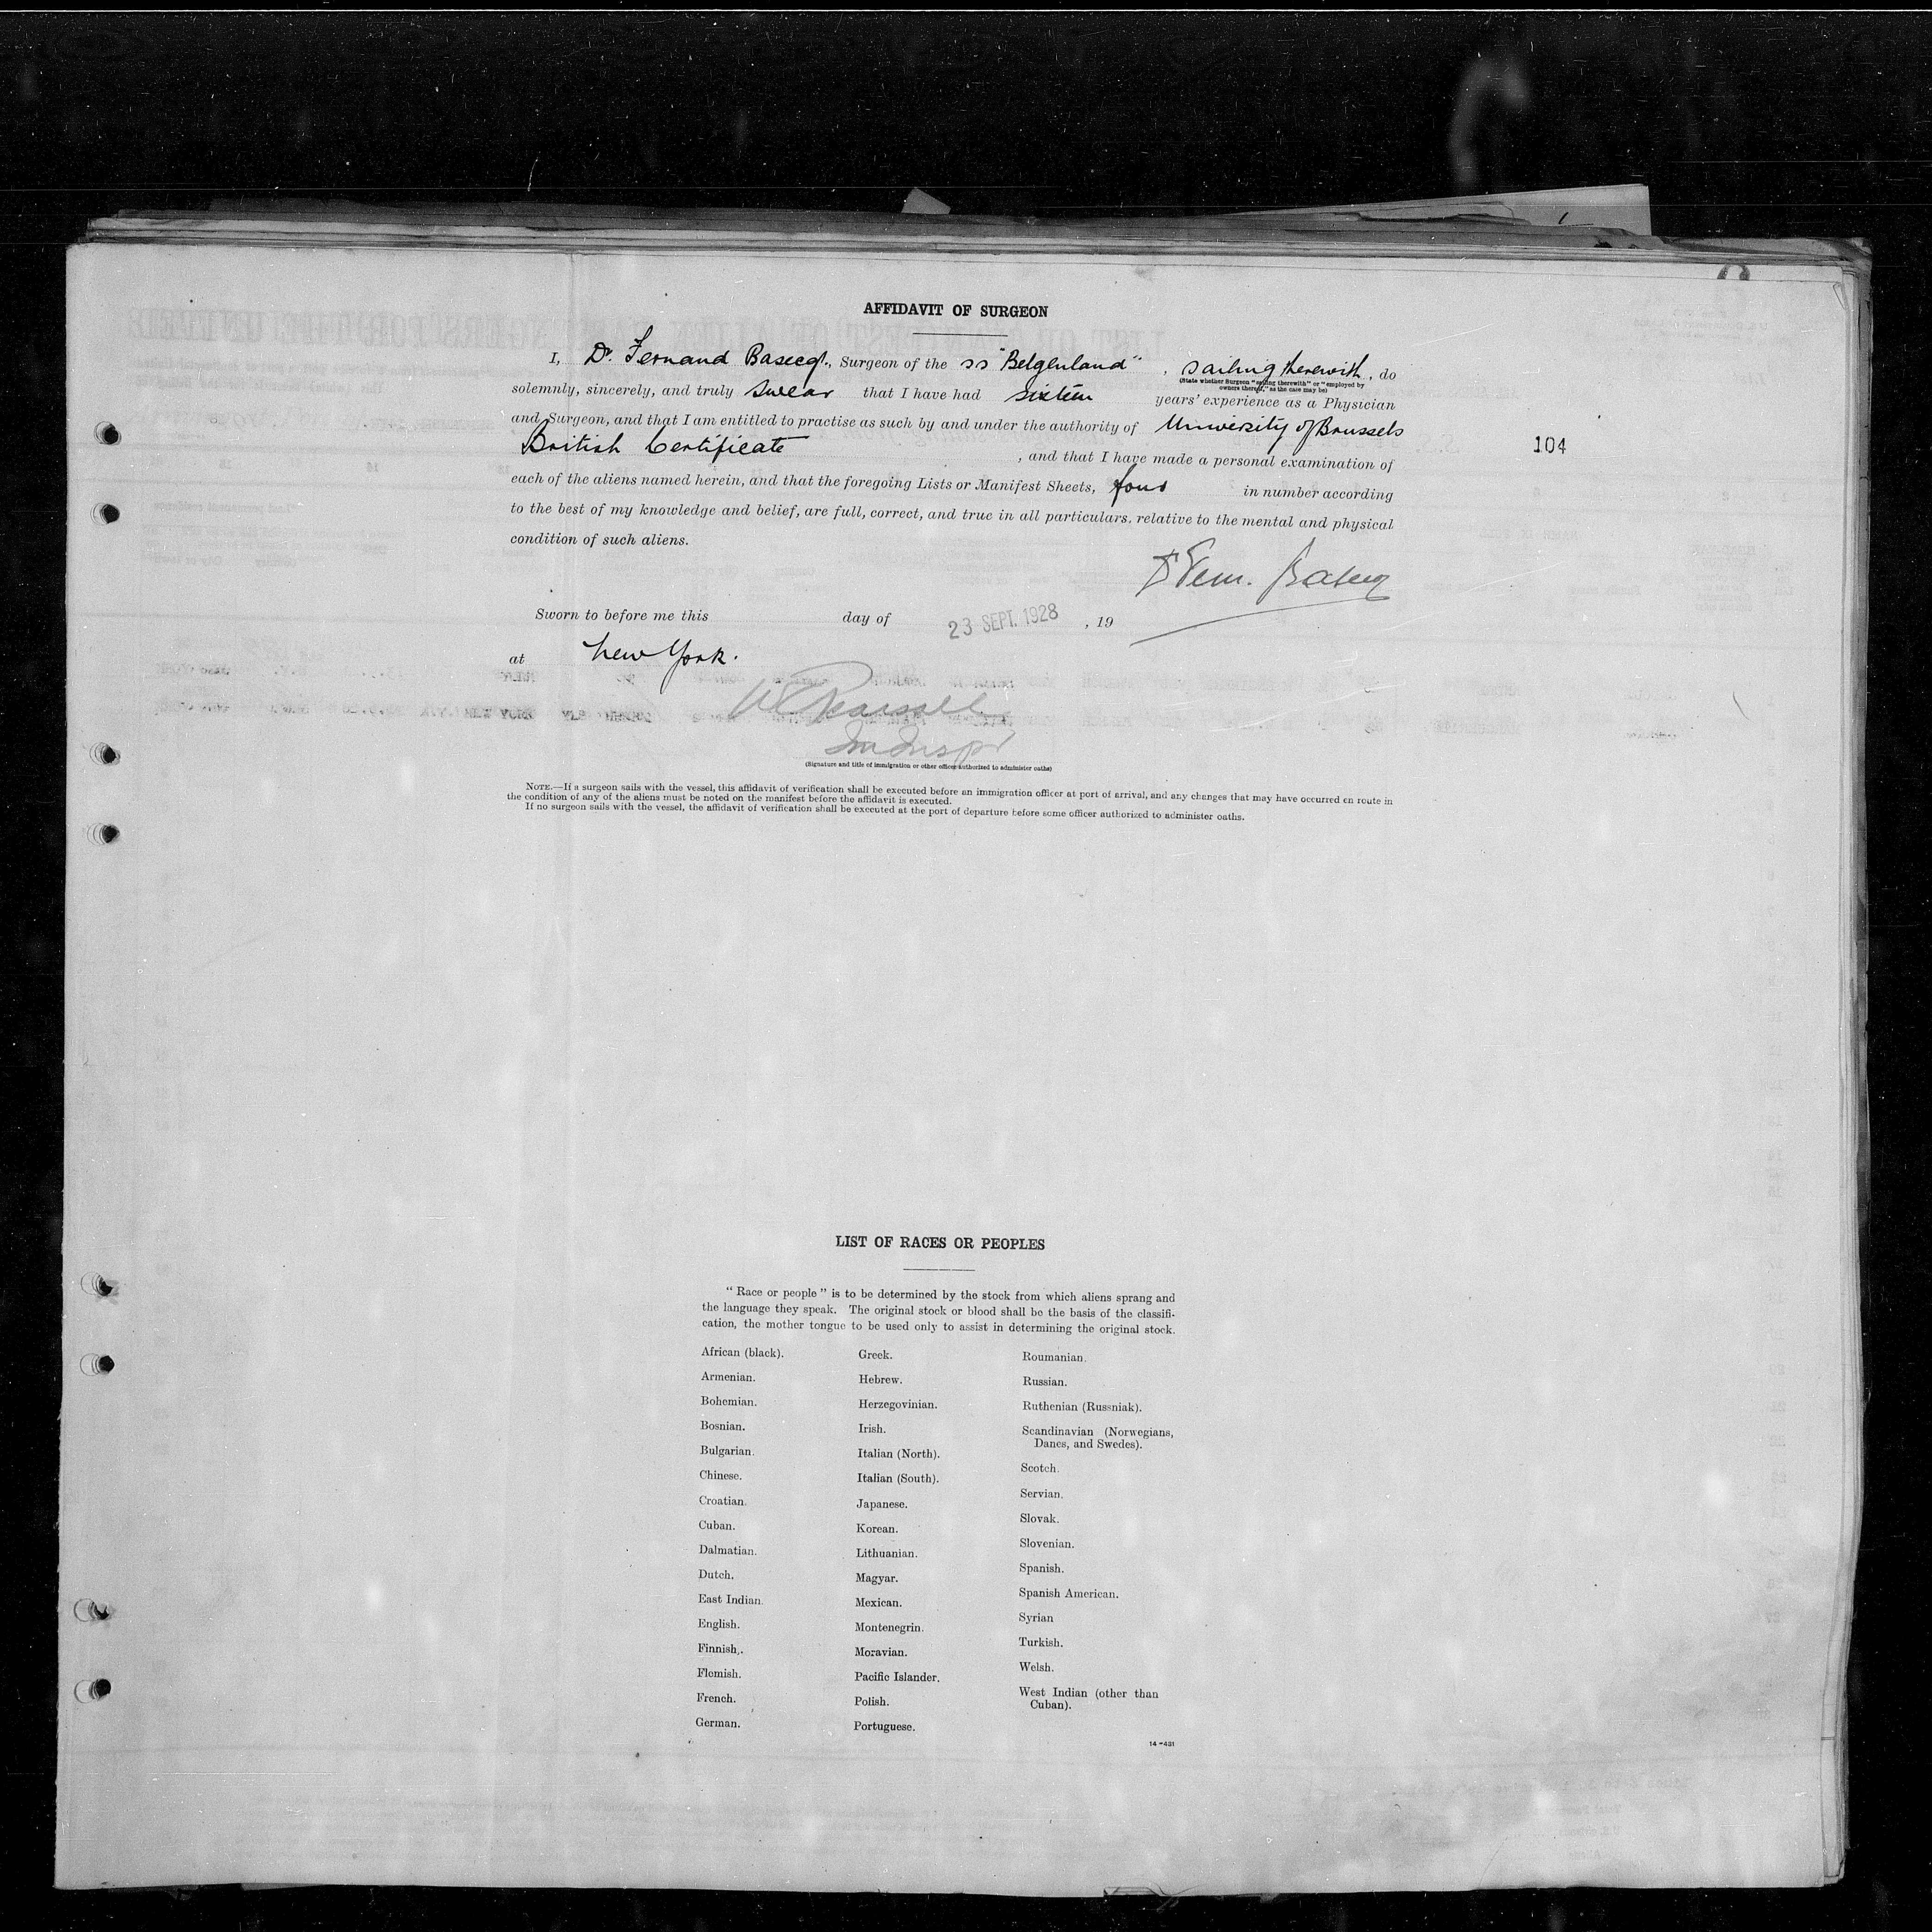 AFFIDAVIT OF SURGEON
I, Dr. Fernand Basecq, Surgeon of the ss "Belgenland", sailing therewith, do
(State whether Surgeon "sailing therewith" or "employed by
owners thereof," as the case may be)
solemnly, sincerely, and truly swear that I have had sixteen years' experience as a Physician
and Surgeon, and that I am entitled to practise as such by and under the authority of University of Brussels
British Certificate, and that I have made a personal examination of
104
each of the aliens named herein, and that the foregoing Lists or Manifest Sheets, four in number according
to the best of my knowledge and belief, are full, correct, and true in all particulars, relative to the mental and physical
condition of such aliens.
Sworn to before me this day of 23 SEPT. 1928, 19
at New York.
(Signature and title of immigration or other officer authorized to administer oaths)
NOTE.—If a surgeon sails with the vessel, this affidavit of verification shall be executed before an immigration officer at port of arrival, and any changes that may have occurred en route in
the condition of any of the aliens must be noted on the manifest before the affidavit is executed.
If no surgeon sails with the vessel, the affidavit of verification shall be executed at the port of departure before some officer authorized to administer oaths.
LIST OF RACES OR PEOPLES
"Race or people" is to be determined by the stock from which aliens sprang and
the language they speak. The original stock or blood shall be the basis of the classifi-
cation, the mother tongue to be used only to assist in determining the original stock.
African (black).
Armenian.
Bohemian.
Bosnian.
Bulgarian.
Chinese.
Croatian.
Cuban.
Dalmatian.
Dutch.
East Indian.
English.
Finnish.
Flemish.
French.
German.
Greek.
Hebrew.
Herzegovinian.
Irish.
Italian (North).
Italian (South).
Japanese.
Korean.
Lithuanian.
Magyar.
Mexican.
Montenegrin.
Moravian.
Pacific Islander.
Polish.
Portuguese.
Roumanian.
Russian.
Ruthenian (Russniak).
Scandinavian (Norwegians,
Danes, and Swedes).
Scotch.
Servian.
Slovak.
Slovenian.
Spanish.
Spanish American.
Syrian
Turkish.
Welsh.
West Indian (other than
Cuban).
14-431